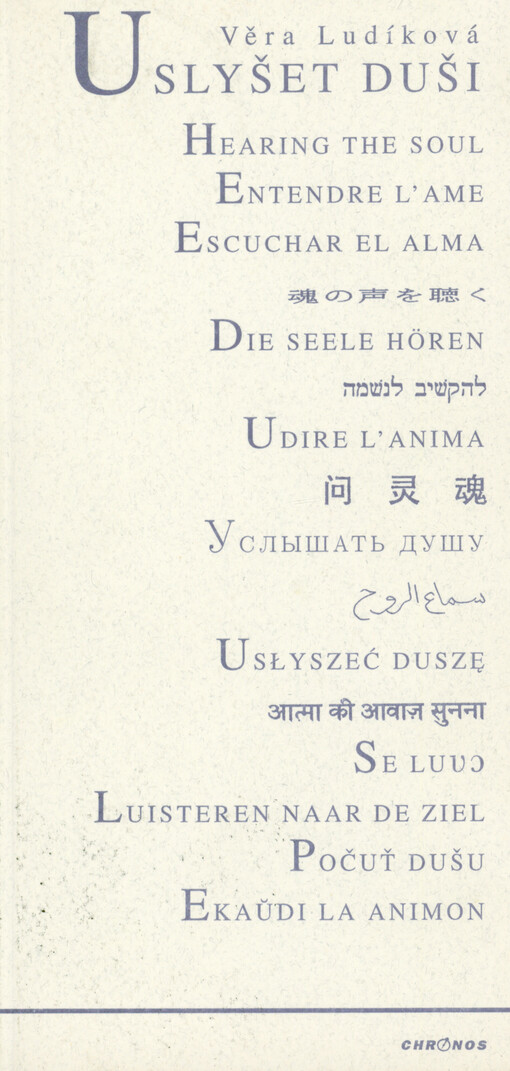 Věra Ludíková
USLYŠET DUŠI
HEARING THE SOUL
ENTENDRE L'AME
ESCUCHAR EL ALMA
魂の声を聴く
DIE SEELE HÖREN
להקשיב לנשמה
UDIRE L'ANIMA
问灵魂
УСЛЫШАТЬ ДУШУ
سماع الروح
USŁYSZEĆ DUSZĘ
आत्मा की आवाज़ सुनना
SE LUUƆ
LUISTEREN NAAR DE ZIEL
POČUŤ DUŠU
EKAŬDI LA ANIMON
CHRONOS